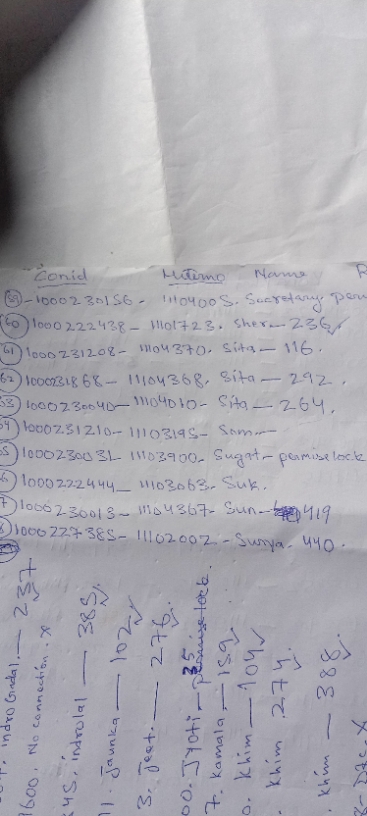 Conid Meterno Name R
59 - 1000230156 - 11104005. Secretary perm
60 1000222438 - 11101723. Sher - 236
61 1000231208 - 11104370. Sita - 116.
62 1000231868 - 11104368. Sita - 292.
63 1000230040 - 11104010 - Sita - 264.
64 1000231210 - 11103195 - Som -
65 1000230031 - 11103900. Sugat - permise lock
6 1000222444 11103063. Suk.
7 1000230013 - 11104367 - Sun - 419
8 1000227385 - 11102002 - Surya. 440.
indra - 237
1600. No connection. x
345. indrolal - 385
11. Jaunka - 102
3. Jeet. - 276.
00. Jyoti - 35 permise lock.
7. Kamala - 159.
0. Khim - 104
Khim 274.
. Khim - 388